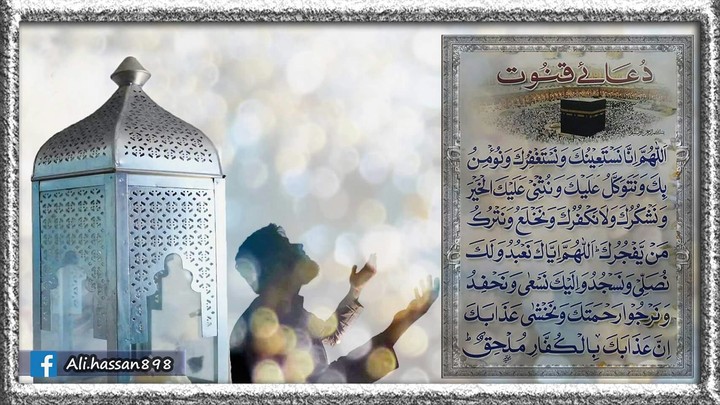 دُعَائے قنُوت
اَللّٰهُمَّ اِنَّا نَسْتَعِيْنُكَ وَنَسْتَغْفِرُكَ وَنُؤْمِنُ
بِكَ وَنَتَوَكَّلُ عَلَيْكَ وَنُثْنِيْ عَلَيْكَ الْخَيْرَ
وَنَشْكُرُكَ وَلَا نَكْفُرُكَ وَنَخْلَعُ وَنَتْرُكُ
مَنْ يَّفْجُرُكَ اَللّٰهُمَّ اِيَّاكَ نَعْبُدُ وَلَكَ
نُصَلِّيْ وَنَسْجُدُ وَاِلَيْكَ نَسْعٰى وَنَحْفِدُ
وَنَرْجُوْا رَحْمَتَكَ وَنَخْشٰى عَذَابَكَ
اِنَّ عَذَابَكَ بِالْكُفَّارِ مُلْحِقٌ
Ali.hassan898